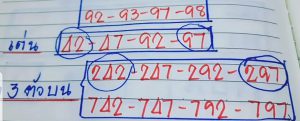 92-93-97-98
เด่น 42-47-92-97
3 ตัวบน 242-247-292-297
742-747-792-797